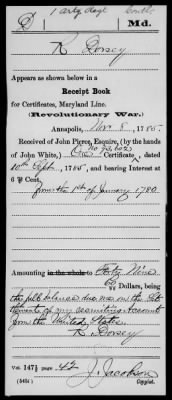 D
Md.
R Dorsey
Appears as shown below in a
Receipt Book
for Certificates, Maryland Line.
(Revolutionary War.)
Annapolis, Nov 8, 1785.
Received of John Pierce, Esquire, (by the hands
of John White,) One Certificate, dated
10th Sept, 1785, and bearing Interest at
6 ⅌ Cent.
from the 1st of January 1780.
Amounting in the whole to Forty Nine
60 Dollars, being
the full balance due me on the Set-
tlements of my accounts
from the United States.
R. Dorsey
Vol. 147½ page 42
J. Jacobson
Copyist.